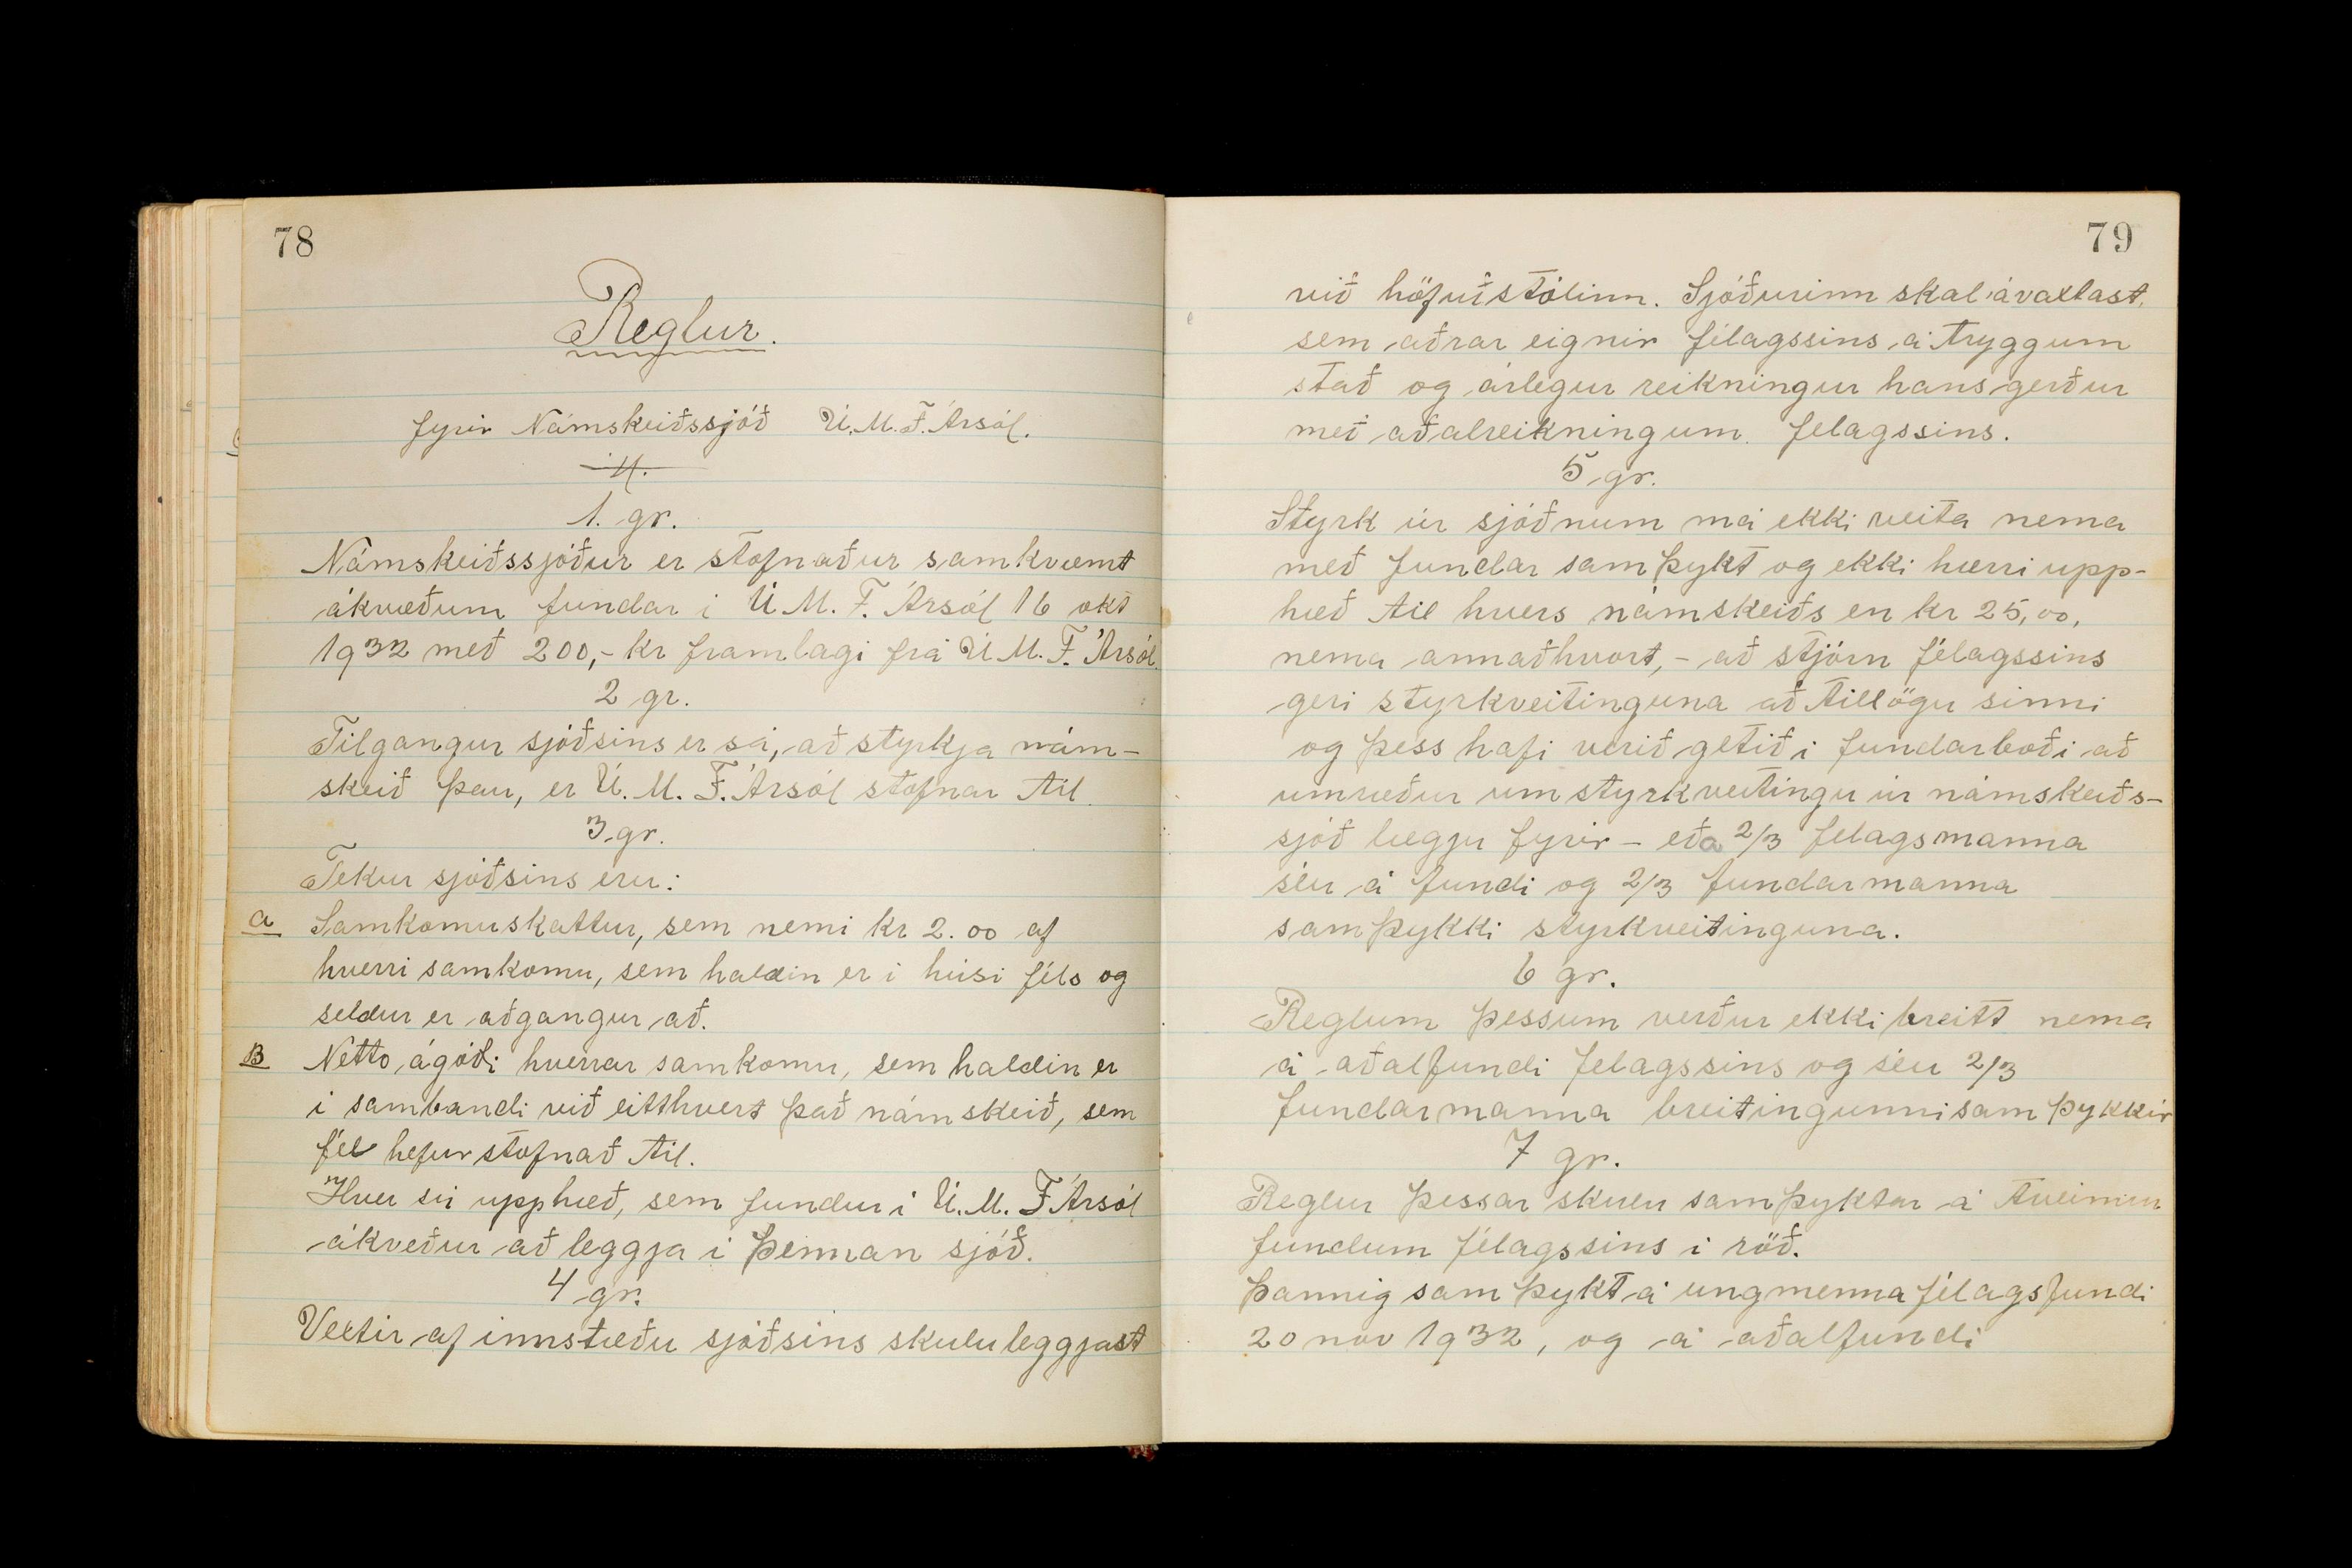 78
Reglur.
fyrir Námskeiðssjóð U.M.F. Ársól.
1. gr.
Námskeiðssjóður er stofnaður samkvæmt
ákvæðum fundar i U.M.F. Ársól 16 okt
1932 með 200,- kr framlagi frá U.M.F. Ársól.
2 gr.
Tilgangur sjóðsins er sá, að styrkja nám-
skeið þau, er U.M.F. Ársól stofnar til
3 gr.
Tekur sjóðsins eru:
a Samkomuskattur, sem nemi kr 2.00 af
hverri samkomu, sem haldin er i húsi féls og
seldur er aðgangur að.
B Netto ágóði hverrar samkomu, sem haldin er
i sambandi við eitthvert það námskeið, sem
fél hefur stofnað til.
Hver sú upphæð, sem fundur i U.M.F Ársól
ákveður að leggja i þennan sjóð.
4 gr.
Vextir af innstæðu sjóðsins skulu leggjast
79
við höfuðstólinn. Sjóðurinn skal ávaxtast,
sem aðrar eignir félagssins á tryggum
stað og árlegur reikningur hans gerður
með aðalreikningum felagssins.
5 gr.
Styrk úr sjóðnum má ekki veita nema
með fundar samþykt og ekki hærri upp-
hæð til hvers námskeiðs en kr 25,00,
nema annaðhvort, - að stjórn félagssins
geri styrkveitinguna að tillögu sinni
og þess hafi verið getið i fundarboði að
umræður um styrkveitingu úr námskeiðs-
sjóð lægju fyrir - eða 2/3 felagsmanna
séu á fundi og 2/3 fundarmanna
samþykki styrkveitinguna.
6 gr.
Reglum þessum verður ekki breitt nema
á aðalfundi felagssins og séu 2/3
fundarmanna breitingunni samþykkir
7 gr.
Reglur þessar skulu samþyktar á tveimur
fundum félagssins i röð.
Þannig samþykt á ungmennafélagsfundi
20 nov 1932, og á aðalfundi